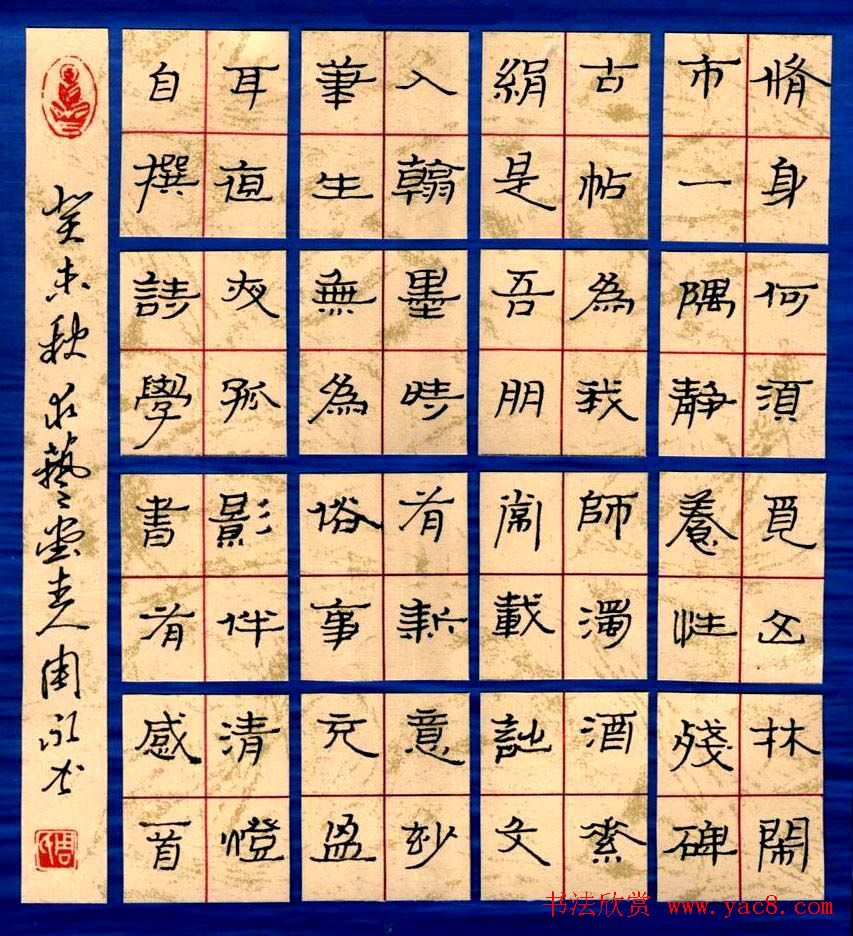 脩身何須覓山林閙
市一隅靜養性殘碑
古帖為我師濁酒素
絹是吾朋載文
入翰墨時有新意玅
筆生無為俗事充盈
耳直夜孤影伴清燈
自撰詩學書有感一首
癸未秋藝堂主人周永
书法欣赏 www.yac8.com